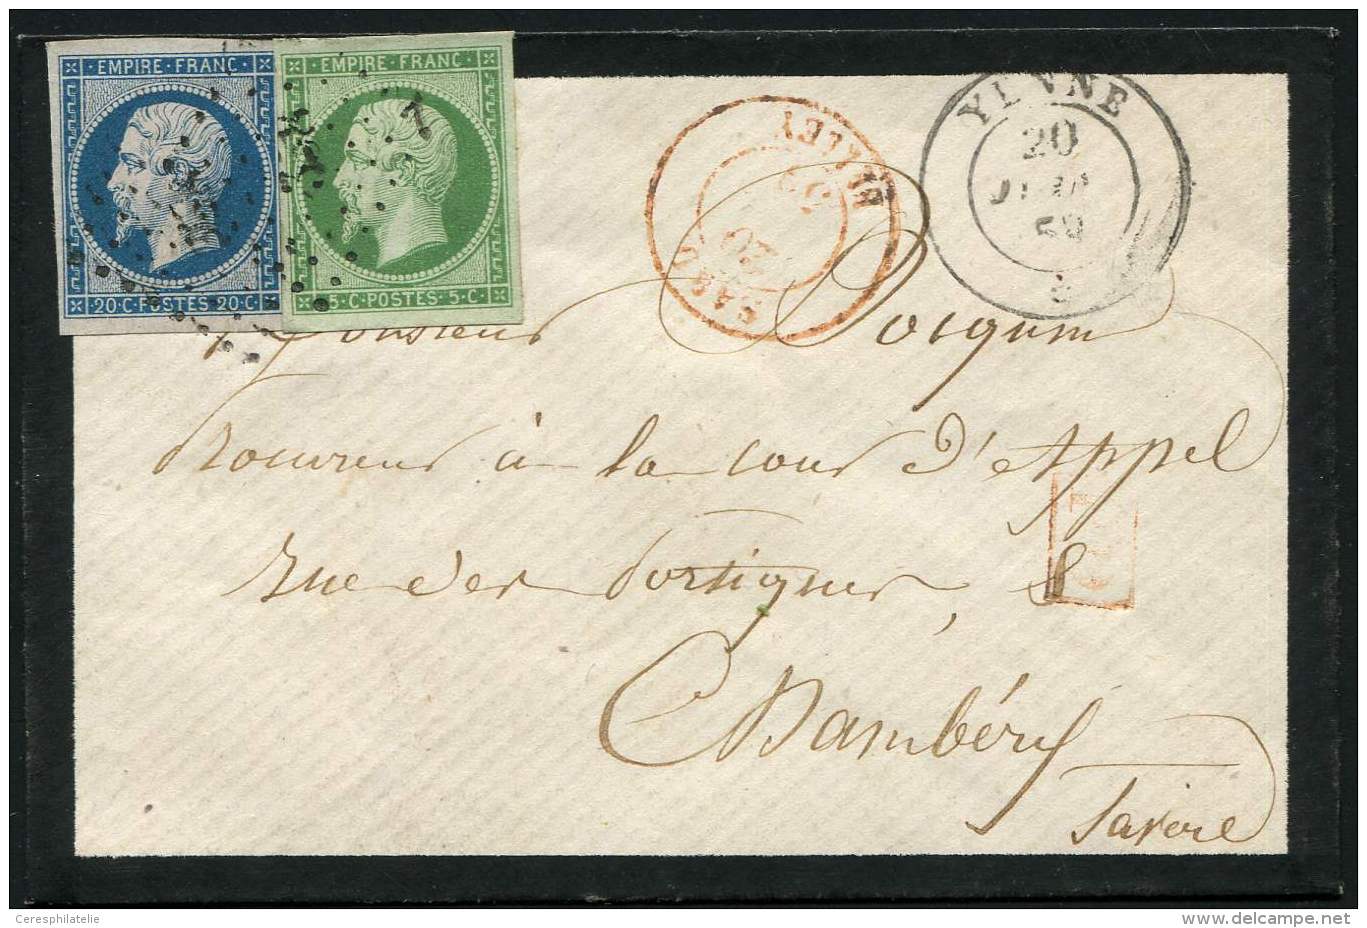 EMPIRE · FRANC ·
20 · C · POSTES · 20 · C ·
EMPIRE · FRANC ·
5 · C · POSTES · 5 · C ·
BELLEY
20
YENNE
20
Monsieur
Procureur à la cour d'Appel
Rue des Portiques, 8
Chambéry
Savoie
Ceresphilatelie
© delcampe.net